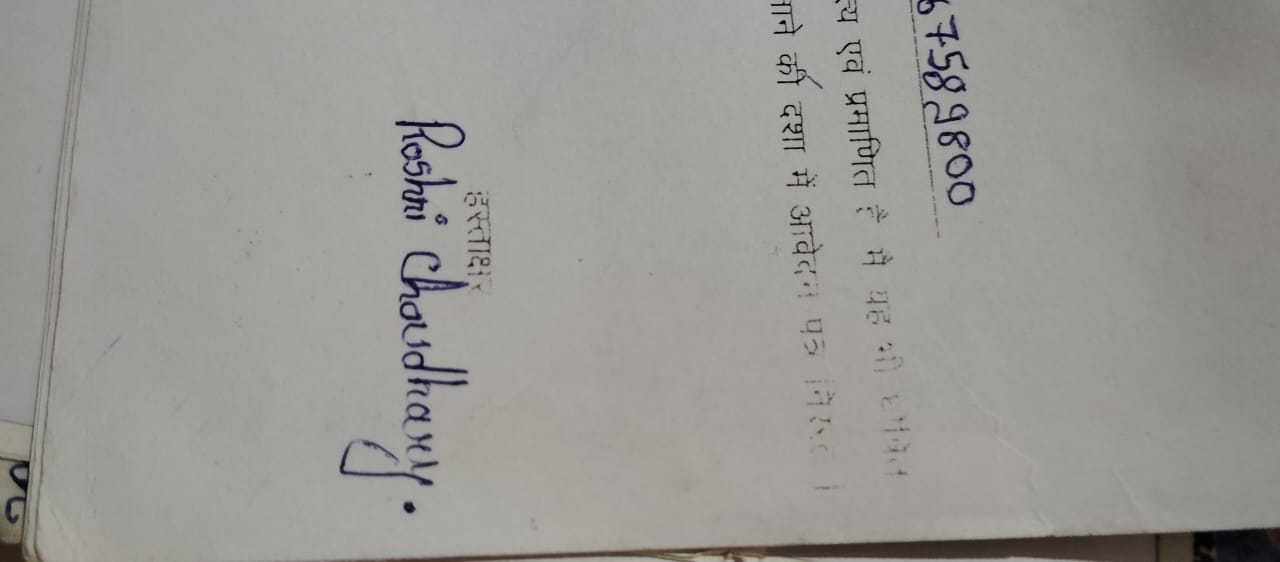 6758 9800
त्य एवं प्रमाणित है मै यह भी घोषित
माने की दशा में आवेदन पत्र निरस्त ।
हस्ताक्षर
Roshni Choudhary.